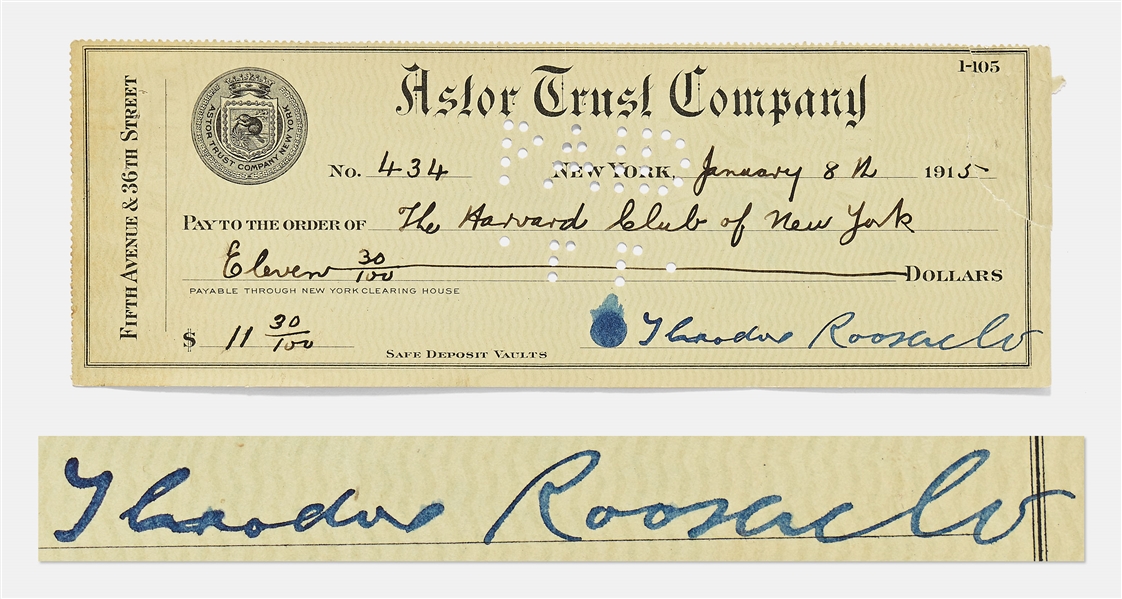 Astor Trust Company
1-105
FIFTH AVENUE & 36TH STREET
ASTOR TRUST COMPANY NEW YORK
No. 434 NEW YORK, January 8th 1915
PAY TO THE ORDER OF The Harvard Club of New York
Eleven 30/100 DOLLARS
PAYABLE THROUGH NEW YORK CLEARING HOUSE
$ 11 30/100
SAFE DEPOSIT VAULTS
Theodore Roosevelt
Theodore Roosevelt